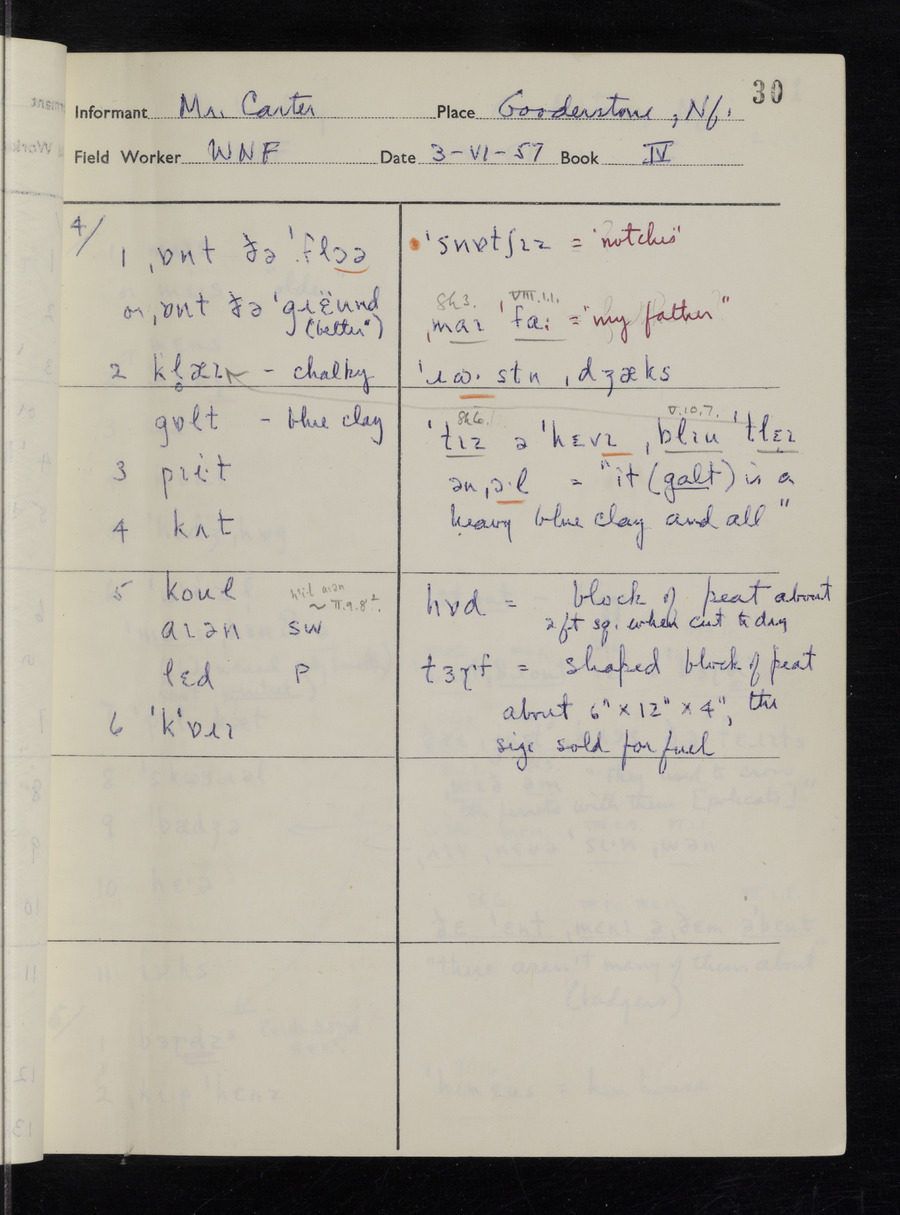 30
Informant Mr. Carter Place Gooderstone, Nf.
Field Worker WNF Date 3-VI-57 Book IV
4/
1 ˌɒnt ðə ˈflɔə
or ˌɒnt ðə ˈgrɛʊnd
("better")
2 klæɪ - chalky
gɒlt - blue clay
3
4 kʌt
5 koʊl
aɪən SW
II.9.8
lɛd P
6
ˈsnɒtʃɪz = "notches"
Sh3. VIII.1.1.
ˌmaɪ ˈfa: = "my father"
stn ˌdʒæks
Sh6. V.10.7.
ˈtɪz ə ˈhɛvɪ ˌblɪu ˈtlɛɪ
ən ˌɔ·l = "it (galt) is a
heavy blue clay and all"
hɒd = block of peat about
2 ft sq. when cut & dry
= shaped block of peat
about 6" × 12" × 4", the
size sold for fuel